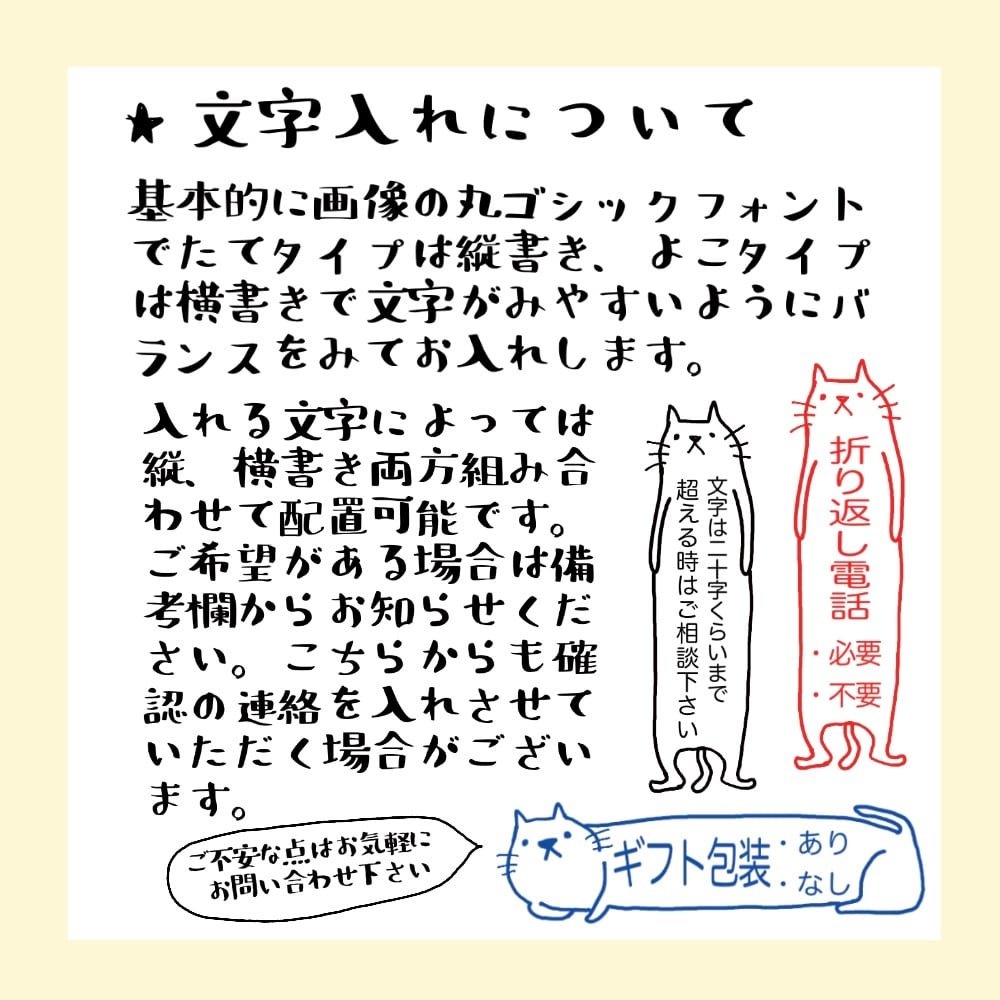 ★文字入れについて
基本的に画像の丸ゴシックフォント
でたてタイプは縦書き、よこタイプ
は横書きで文字がみやすいようにバ
ランスをみてお入れします。
入れる文字によっては
縦、横書き両方組み合
わせて配置可能です。
ご希望がある場合は備
考欄からお知らせくだ
さい。こちらからも確
認の連絡を入れさせて
いただく場合がござい
ます。
文字は二十字くらいまで
超える時はご相談下さい
折り返し電話
・必要
・不要
ご不安な点はお気軽に
お問い合わせ下さい
ギフト包装
・あり
・なし